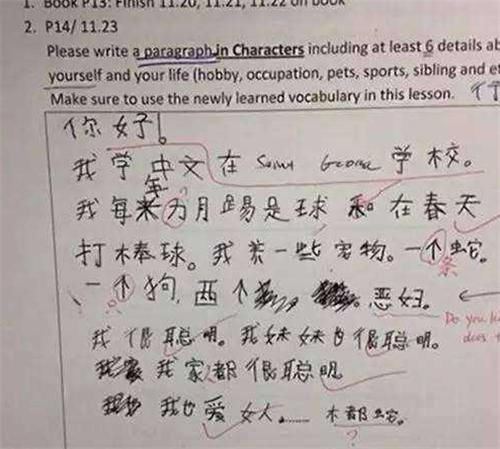 1. Book P13: Finish 11.20, 11.21, 11.22 on book
2. P14/ 11.23
Please write a paragraph in Characters including at least 6 details ab
yourself and your life (hobby, occupation, pets, sports, sibling and et
Make sure to use the newly learned vocabulary in this lesson.
你好!
我学中文在 学校。
年
我每 月踢是球 和在春天
打棒球。我养一些宠物。一个蛇。
条
一个狗,西个 恶妇。
Do you
does
我很聪明。我妹妹也很聪明。
我家都很聪明
我也爱女人...... 木都蛇。
?